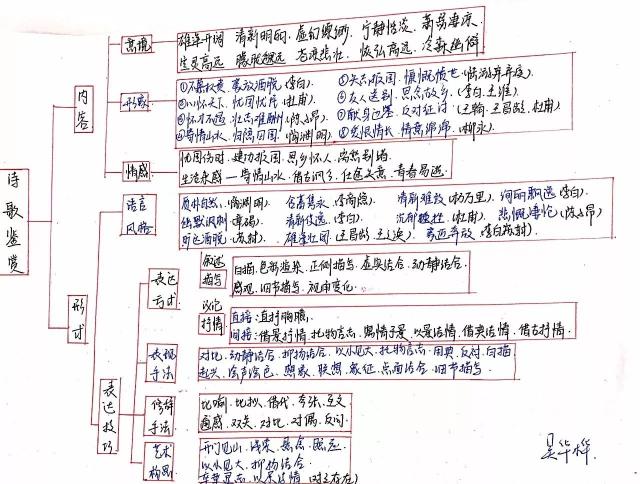 诗歌鉴赏
内容
意境
雄浑开阔 清新明丽 虚幻缥缈 宁静恬淡 萧瑟凄凉
生灵高远 朦胧超远 苍凉悲壮 恢弘高远 冷森幽僻
形象
①不慕权贵 豪放洒脱 (李白)
②心怀天下 忧国忧民 (杜甫)
③怀才不遇 壮志难酬 (陈子昂)
④寄情山水 归隐田园 (陶渊明)
⑤矢志报国 慷慨愤世
⑥友人送别 思念故乡 (李白 王维)
⑦献身边塞 反对征讨 (王翰 王昌龄 杜甫)
⑧爱恨情长 情意绵绵 (柳永)
情感
忧国伤时 建功报国 思乡怀人 离愁别绪
生活杂感—寄情山水 借古讽今 仕途失意 青春易逝
形式
语言风格
质朴自然 (陶渊明) 含蓄隽永 (李商隐) 清新雅致 (杨万里) 绚丽飘逸 李白)
幽默讽刺 清新俊逸 (李白) 沉郁顿挫 (杜甫) 悲慨凄怆 (陈子昂)
旷达洒脱 (苏轼) 雄浑壮阔 (王昌龄 豪迈奔放 李白苏轼)
表达技巧
表达方式
叙述
描写
白描 色彩渲染 正侧描写 虚实结合 动静结合
感观 细节描写 视角变化
议论
抒情
直接:直抒胸臆
间接:借景抒情 托物言志 寓情于景 以景结情 借典达情 借古抒情
表现手法
对比 动静结合 抑扬结合 以小见大 托物言志 用典 反衬 白描
起兴 绘声绘色 照歇 联想 象征 点面结合 细节描写
修辞手法
比喻 比拟 借代 夸张 互文
通感 双关 对比 对偶 反问
艺术构思
开门见山 悬念 照应
以小见大 抑扬结合
卒章显志 以景结情
吴华桦